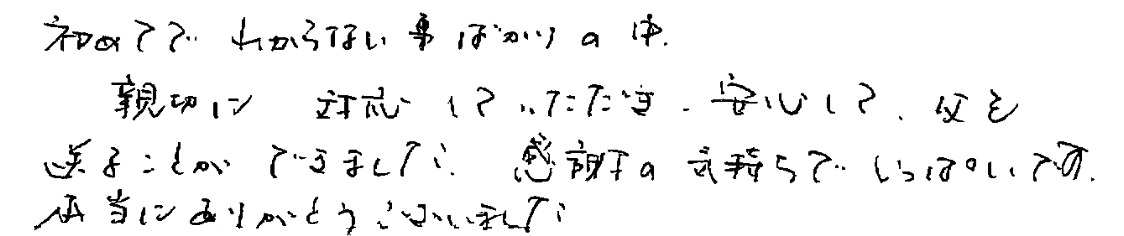 初めてで わからない事ばかりの中、
親切に 対応していただき、安心して、父を
送ることができました。感謝の気持ちでいっぱいです。
本当にありがとうございました。